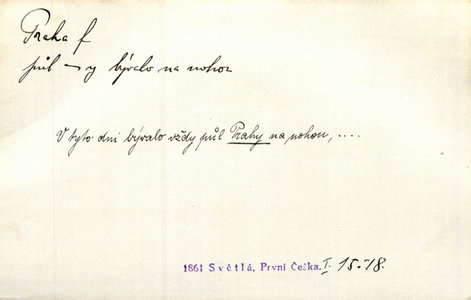 Praha f
půl –y bývalo na nohou
V tyto dni bývalo vždy půl Prahy na nohou, ....
1861 Světlá, První Češka. I. 15.-18.